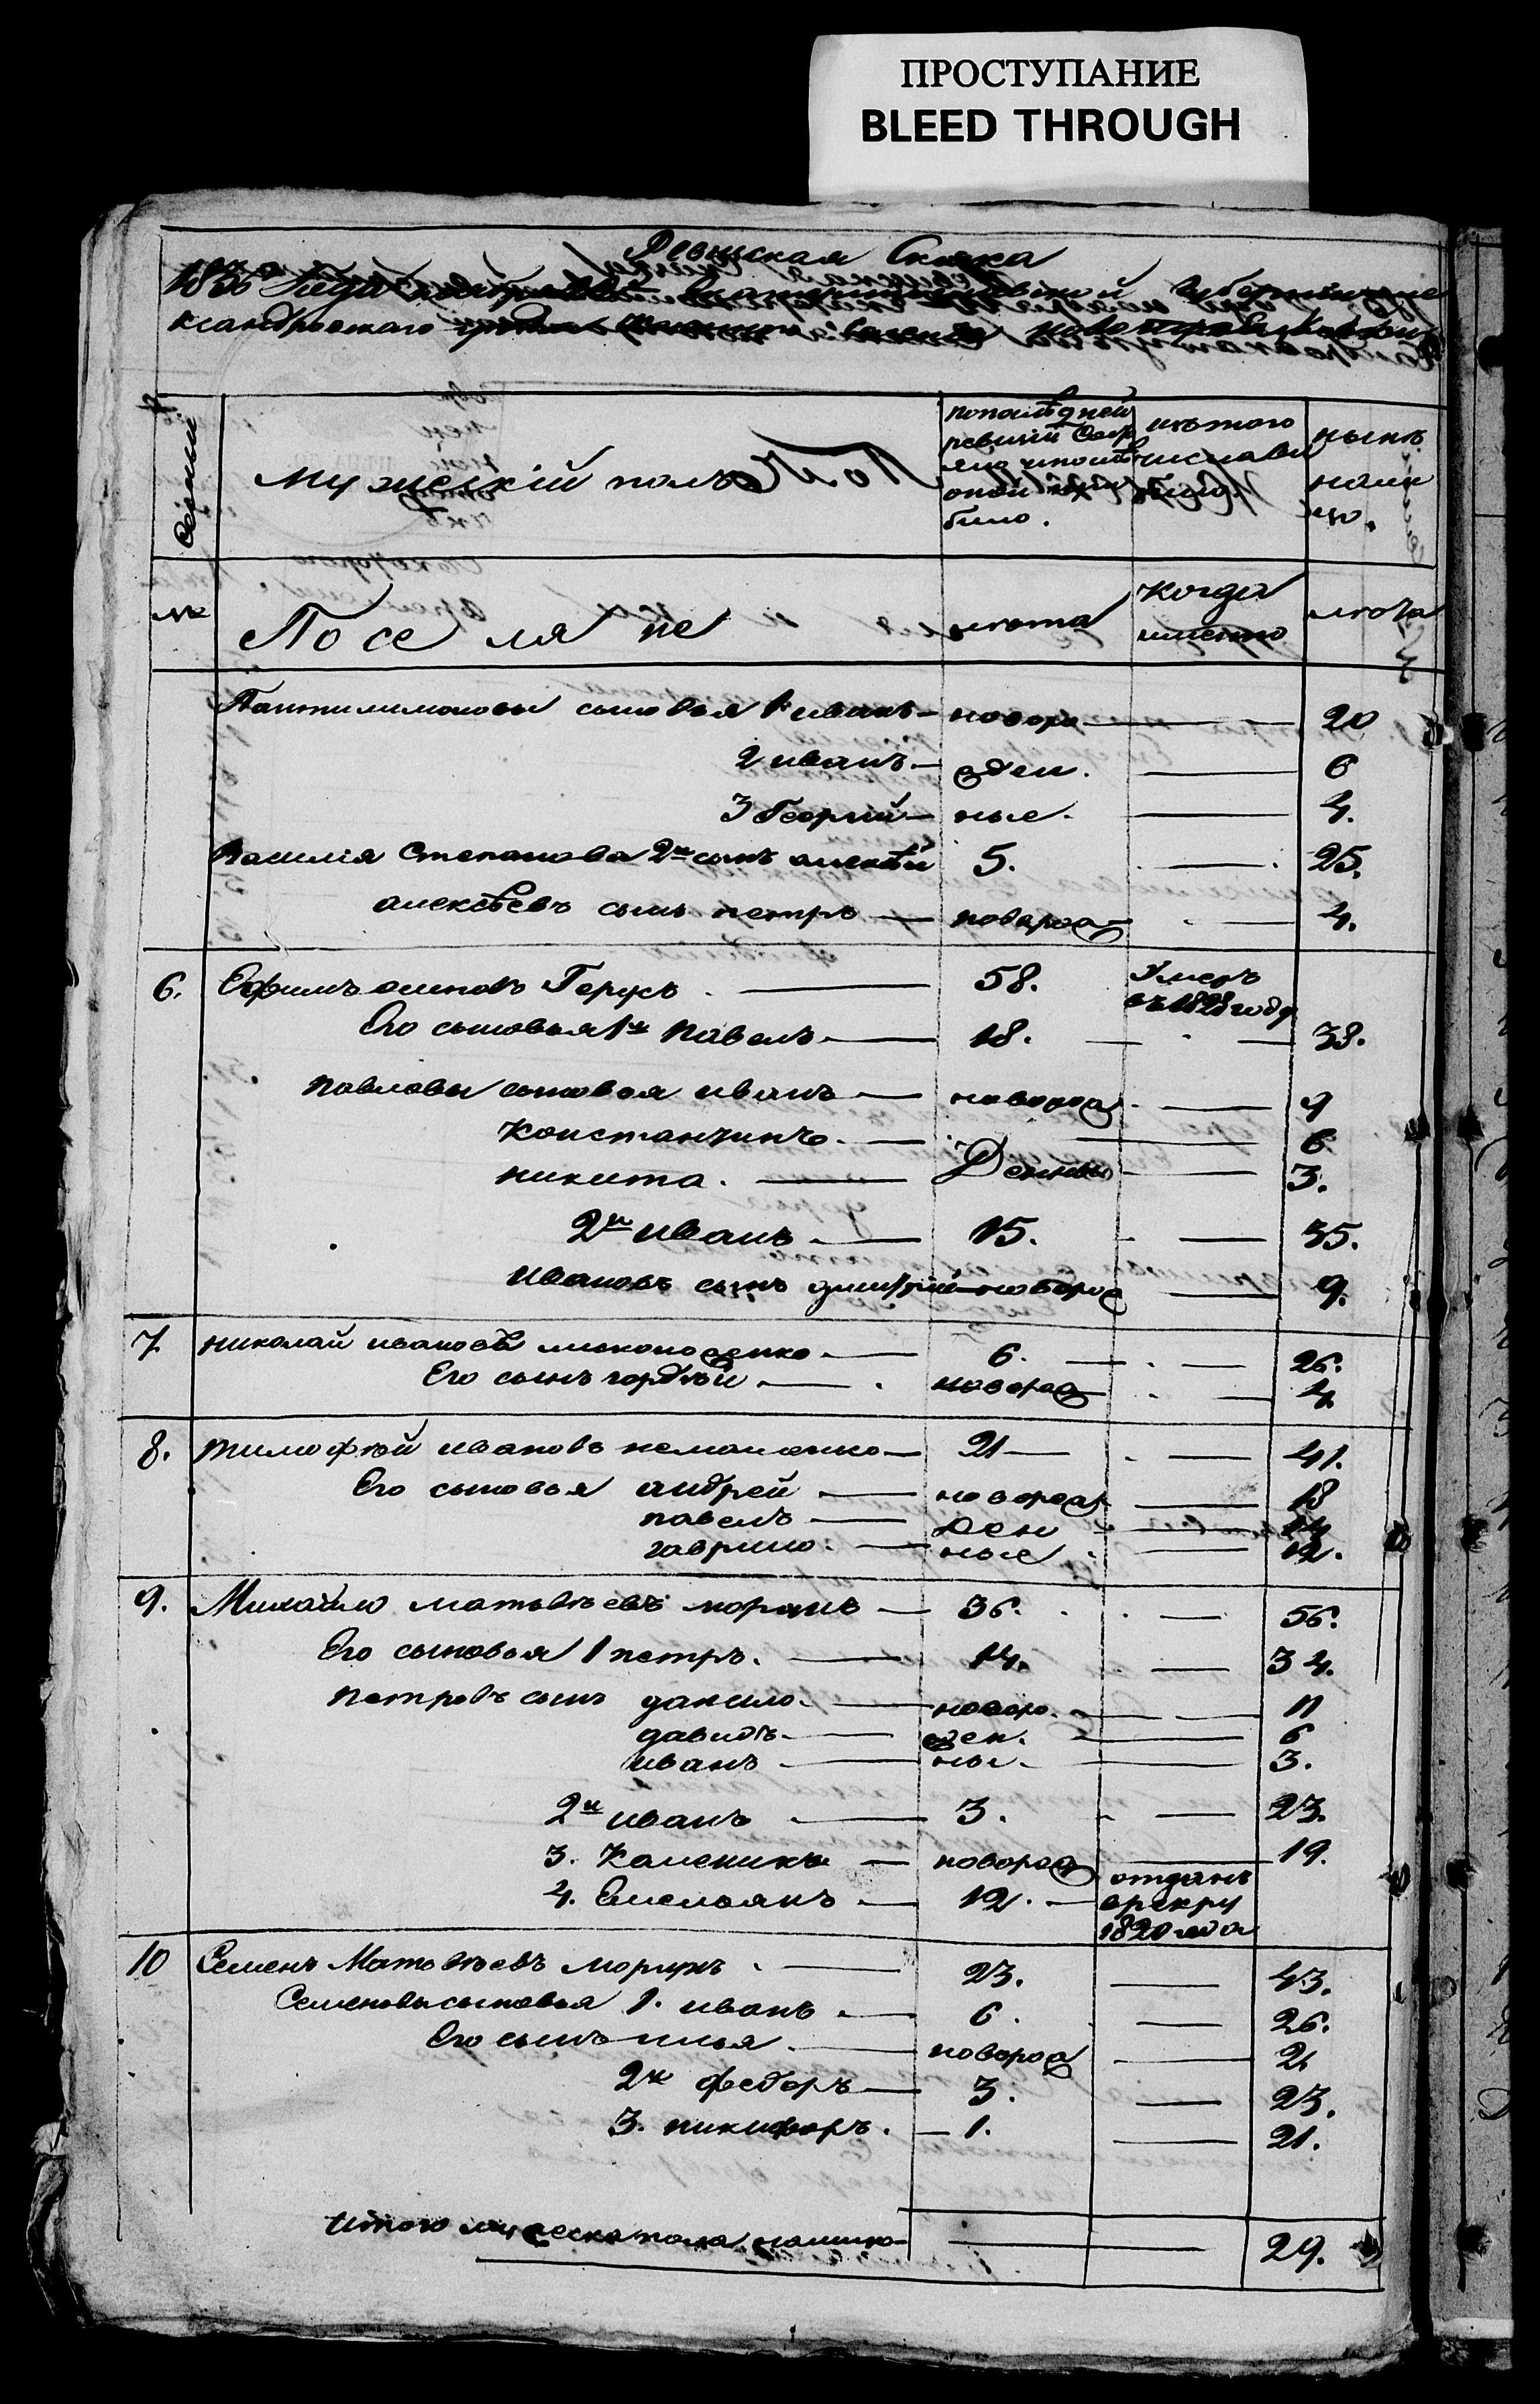 ПРОСТУПАНИЕ
BLEED THROUGH
Ревизская Сказка
мужескій полъ
по последней ревизіи было
изъ того числа выбыло
нынѣ на лицо.
№ Поселяне лѣта когда именно лѣта
Пантилимоновы сыновья 1й иванъ — новоро — 20
2 иванъ — жден. — 6
3 Георгий — ные. — 4.
Василія Степанова 2й сынъ алексѣй 5. — 25.
алексѣевъ сынъ петръ —новорож — 4.
6. Ефимъ Герусъ. — 58. Умеръ въ 1828 году
Его сыновья 1й павелъ — 18. — 38.
павловы сыновья иванъ — новорож — 9
Константинъ. — 6
никита. — Денны — 3.
2й иванъ — 15. — 35.
ивановъ сынъ дмитрій — новорож — 9.
7. николай ивановъ — 6. — 26.
Его сынъ гордѣй — новорож — 4
8. тимофѣй ивановъ — 21 — 41.
Его сыновья андрей — новорож — 18
павелъ — ден — 14
гаврило. — ные — 12.
9. Михайло матвѣевъ морунъ — 36. — 56.
Его сыновья 1 петръ. — 14. — 34.
петровъ сынъ данило. — новоро. — 11
давидъ — жден. — 6
иванъ — ны. — 3.
2й иванъ — 3. — 23.
3. Каленикъ — новорож — 19.
4. Емельянъ — 12. — отданъ в рекру 1820 года
10 Семенъ Матвѣевъ морунъ — 23. — 43.
Семеновы сыновья 1. иванъ — 6. — 26.
Его сынъ илья — новорож — 2
2й федоръ — 3. — 23.
3. никифоръ. — 1. — 21.
итого мужеска пола налицо — 29.